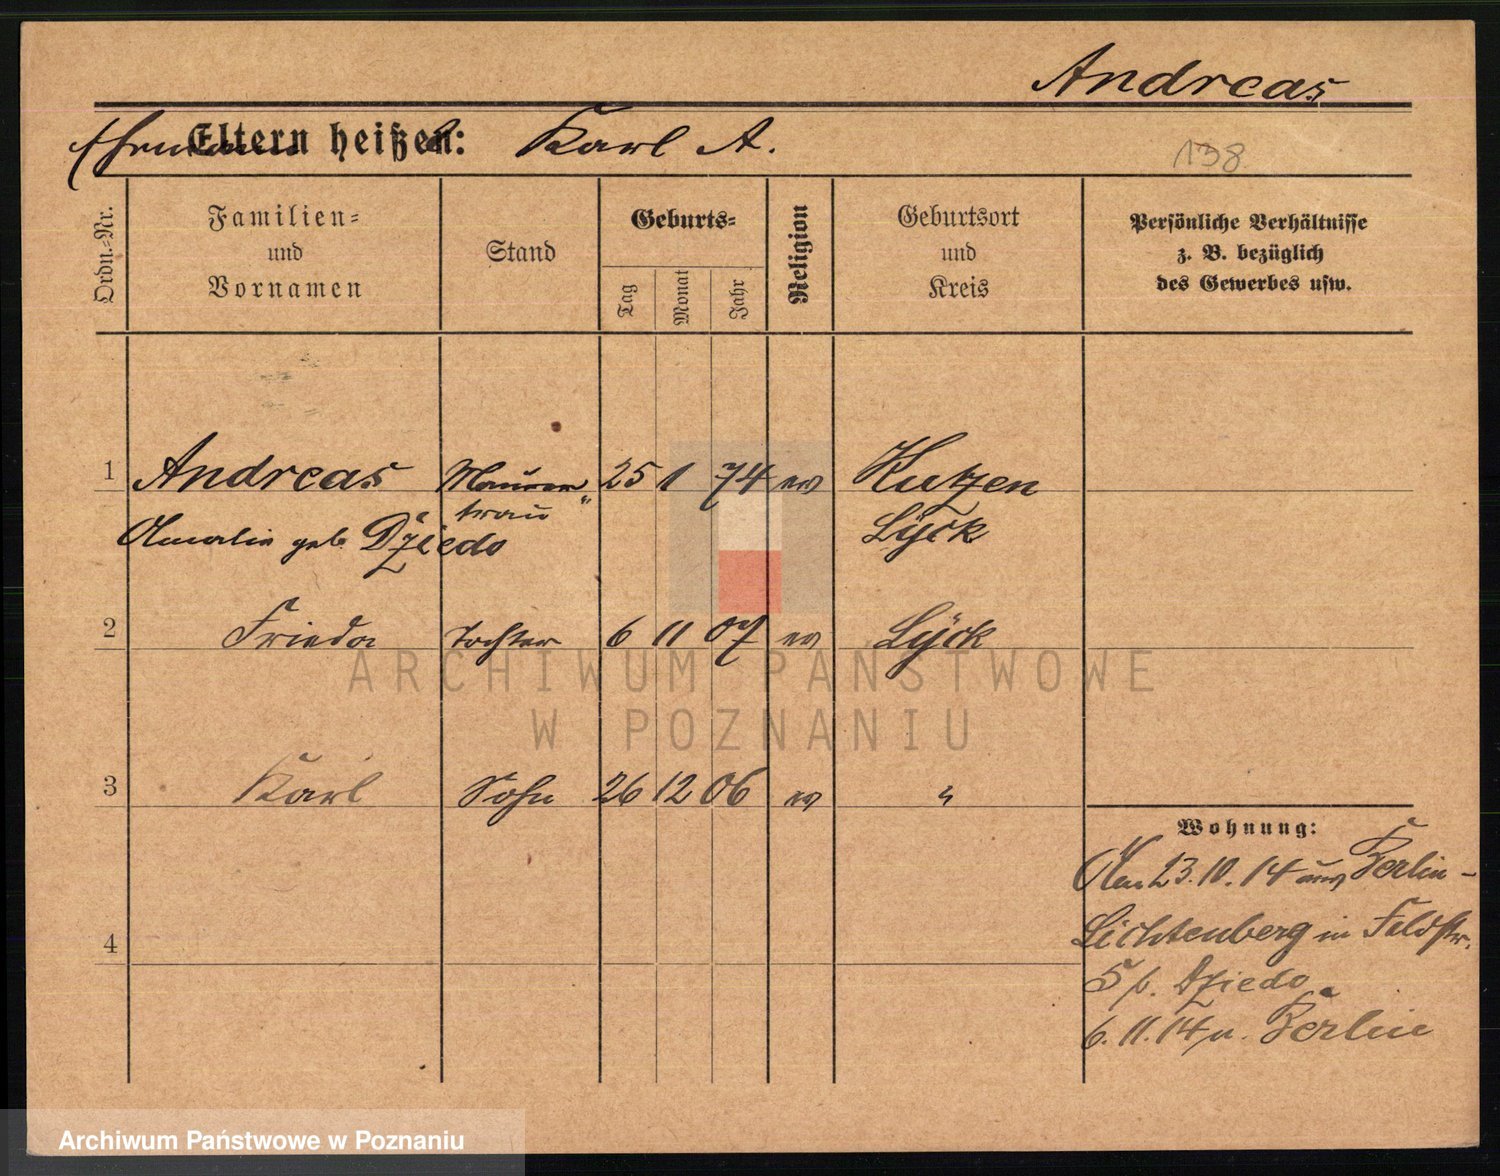 Andreas
Eltern heißen: Karl A.
138
Ordn.-Nr.
Familien-
und
Vornamen
Stand
Geburts-
Tag
Monat
Jahr
Religion
Geburtsort
und
Kreis
Persönliche Verhältnisse
z. B. bezüglich
des Gewerbes usw.
1 Andreas Maurer 25 1 74 ev Kutzen
frau "
Amalie geb. Dziedo Lyck
2 Frieda Tochter 6 11 07 ev Lyck
ARCHIWUM PAŃSTWOWE
W POZNANIU
3 Karl Sohn 26 12 06 ev "
Wohnung:
Am 23.10.14 aus Berlin -
Lichtenberg in Feldstr.
4
5 b. Dziedo
6.11.14 n. Berlin
Archiwum Państwowe w Poznaniu